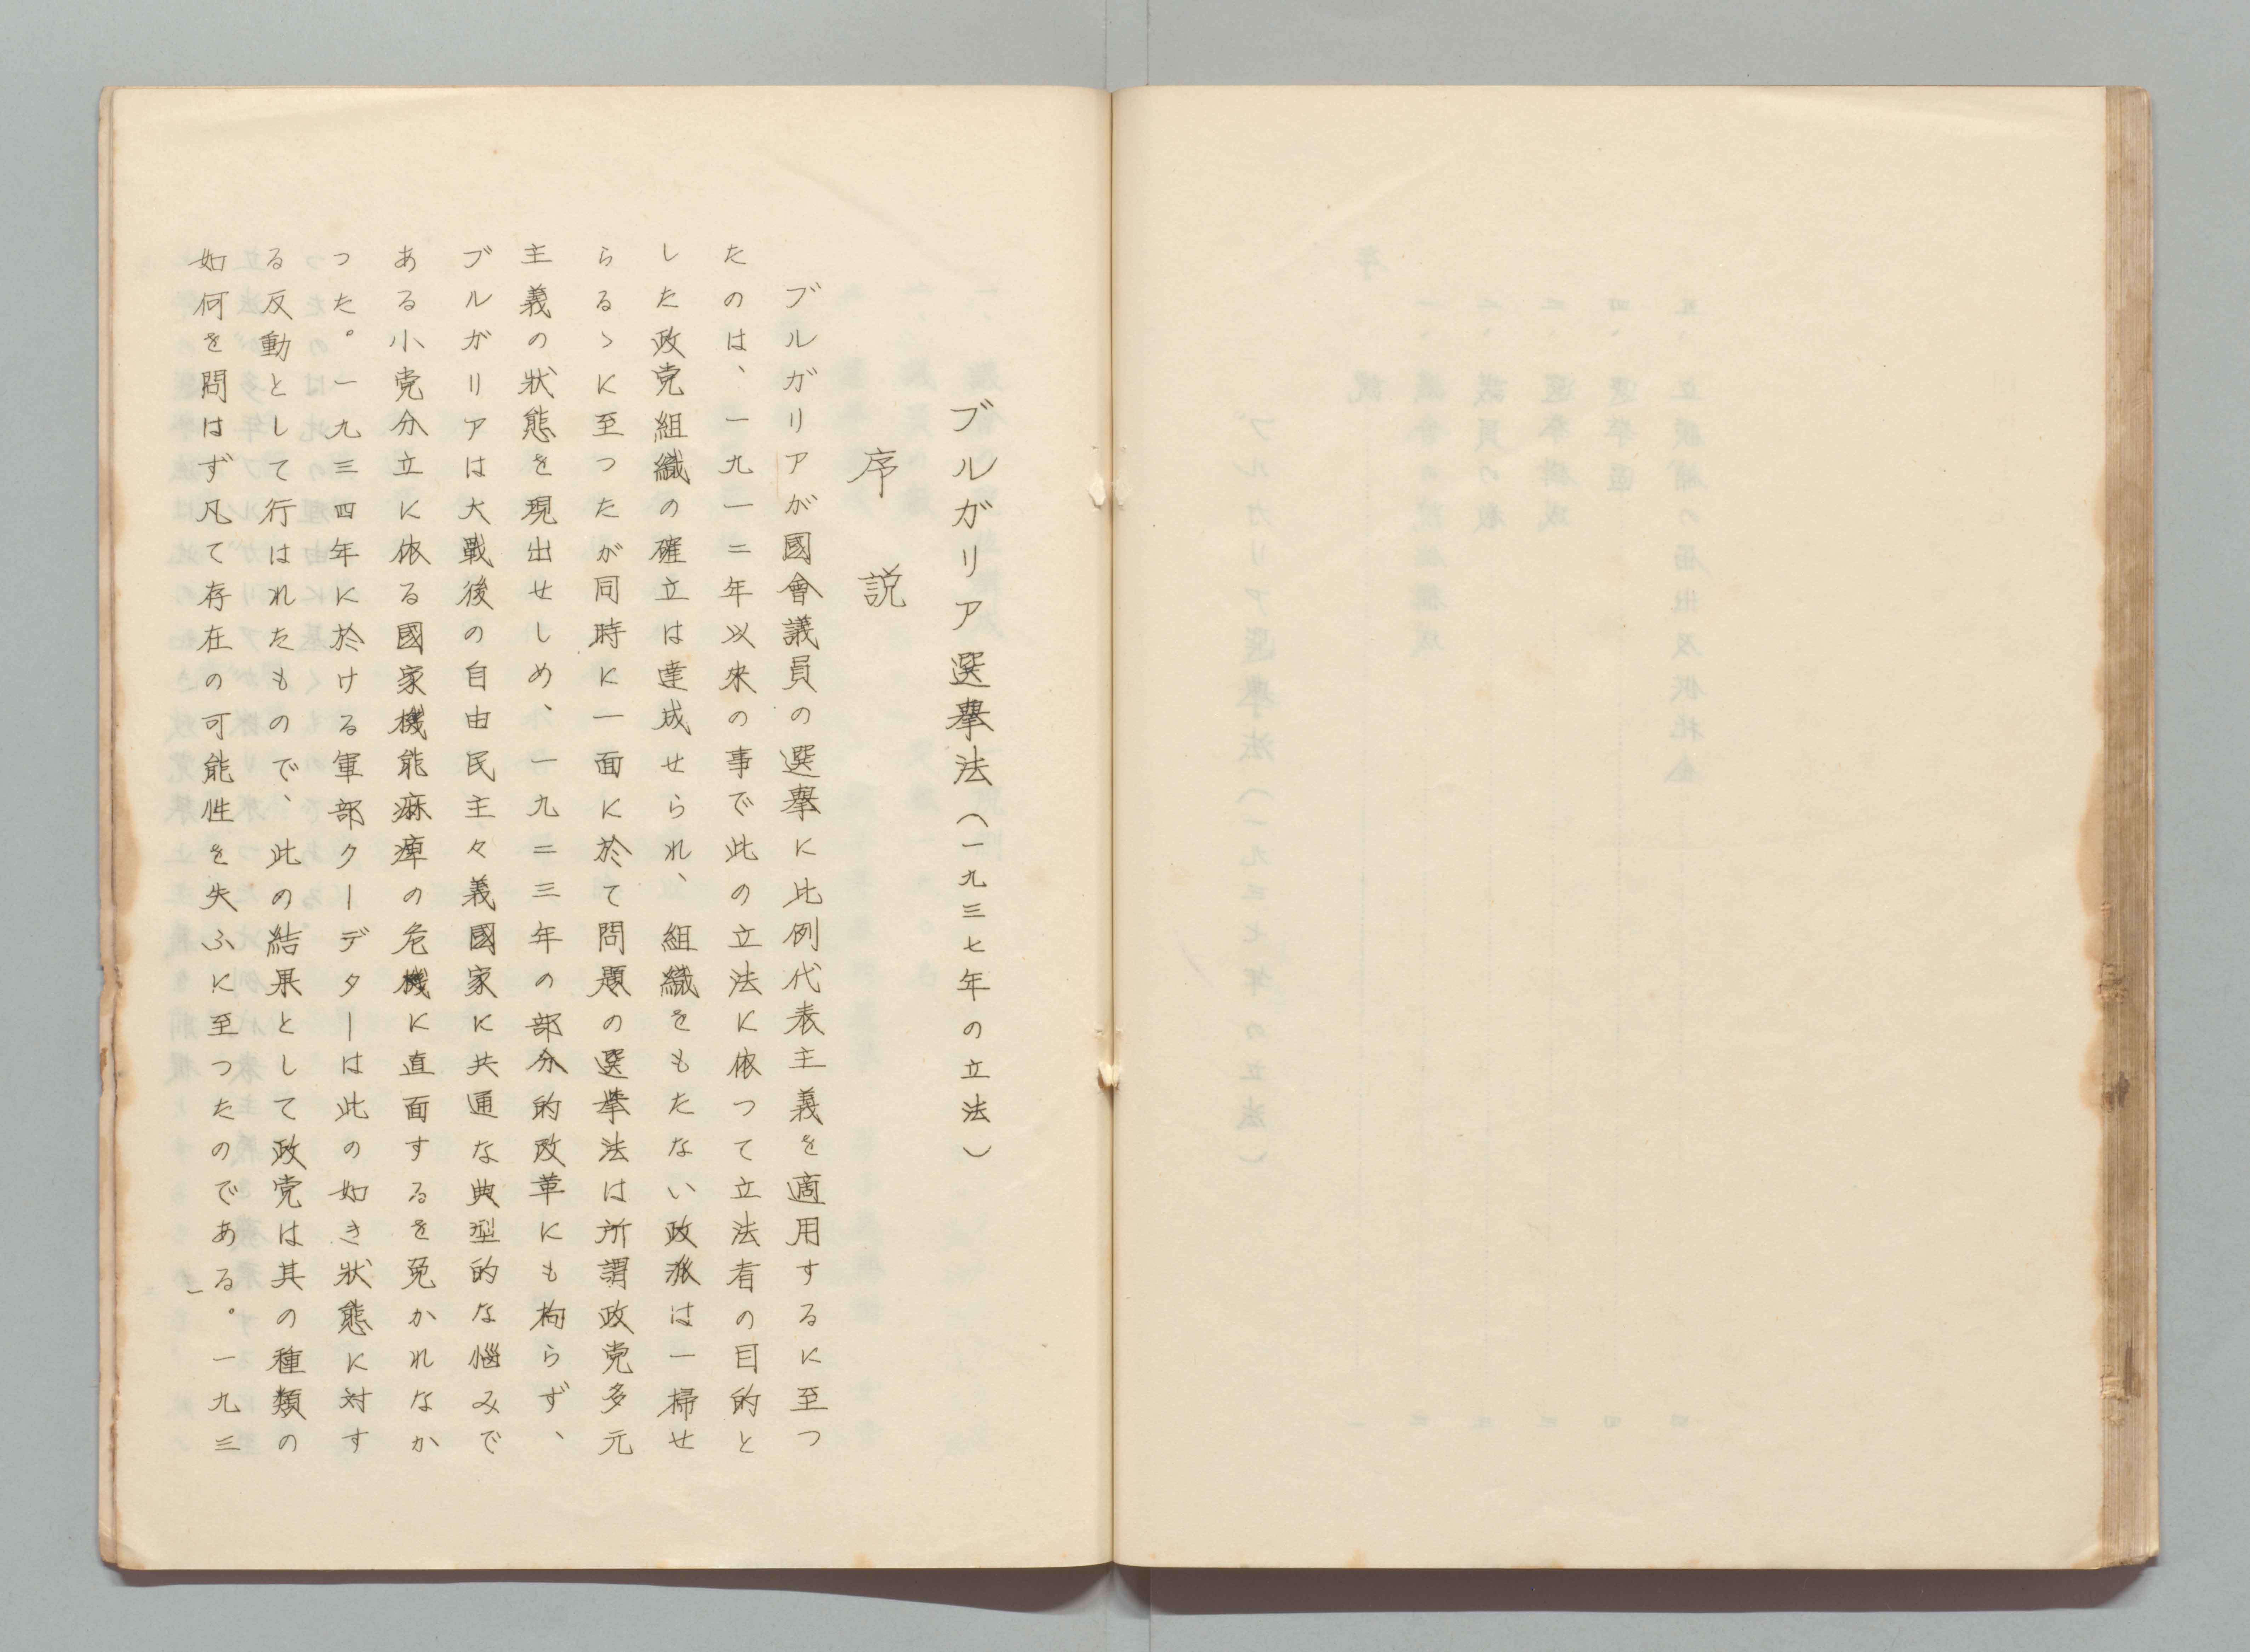 ブルガリア選擧法（一九三七年の立法）
序説
ブルガリアが國會議員の選擧に比例代表主義を適用するに至つ
たのは、一九一二年以來の事で此の立法に依つて立法者の目的と
した政党組織の確立は達成せられ、組織をもたない政派は一掃せ
らるゝに至つたが同時に一面に於て問題の選擧法は所謂政党多元
主義の狀態を現出せしめ、一九二三年の部分的改革にも拘らず、
ブルガリアは大戰後の自由民主々義國家に共通な典型的な惱みで
ある小党分立に依る國家機能痳痺の危機に直面するを免かれなか
つた。一九三四年に於ける軍部クーデターは此の如き狀態に対す
る反動として行はれたもので、此の結果として政党は其の種類の
如何を問はず凡て存在の可能性を失ふに至つたのである。一九三
一